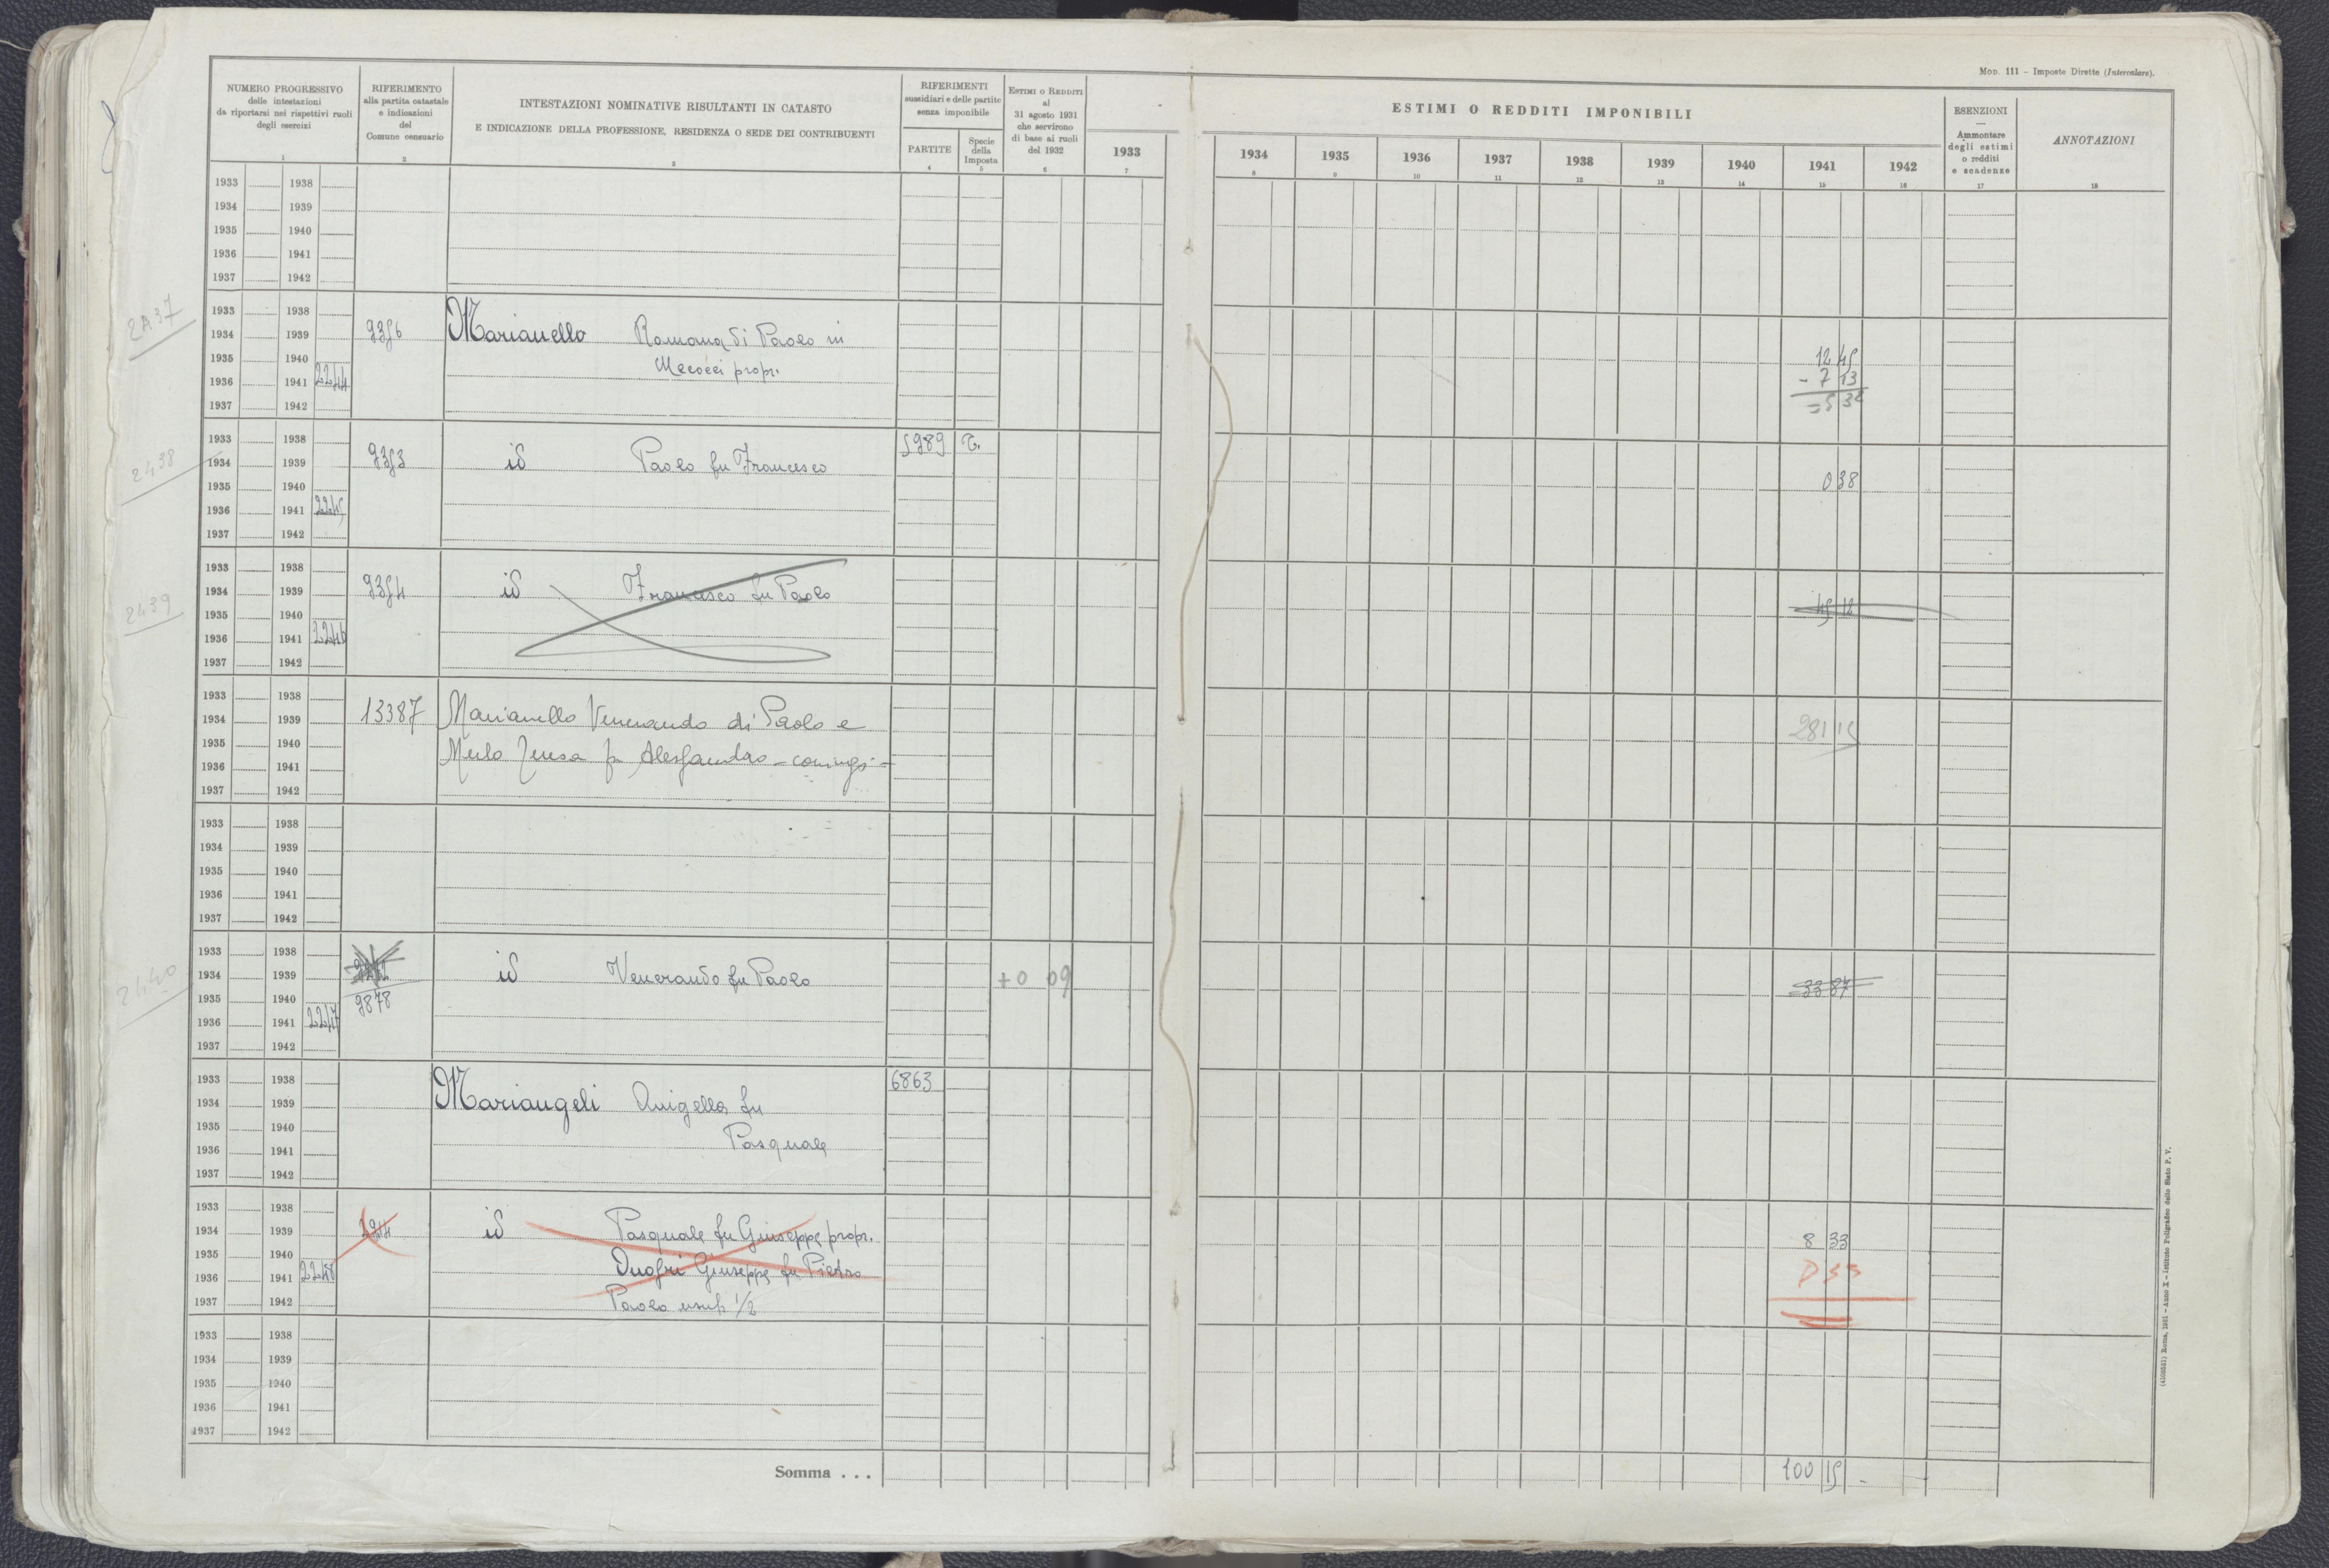 Mod. 111 - Imposte Dirette (Intercalare).
NUMERO PROGRESSIVO
delle intestazioni
da riportarsi nei rispettivi ruoli
degli esercizi
RIFERIMENTO
alla partita catastale
e indicazioni
del
Comune censuario
INTESTAZIONI NOMINATIVE RISULTANTI IN CATASTO
E INDICAZIONE DELLA PROFESSIONE, RESIDENZA O SEDE DEI CONTRIBUENTI
RIFERIMENTI
sussidiari e delle partite
senza imponibile
PARTITE
Specie
della
Imposta
ESTIMI O REDDITI
al
31 agosto 1931
che servirono
di base ai ruoli
del 1932
ESTIMI O REDDITI IMPONIBILI
1933 1934 1935 1936 1937 1938 1939 1940 1941 1942
ESENZIONI
—
Ammontare
degli estimi
o redditi
e scadenze
ANNOTAZIONI
1 2 3 4 5 6 7 8 9 10 11 12 13 14 15 16 17 18
1933 1938
1934 1939
1935 1940
1936 1941
1937 1942
2437
1933 1938
1934 1939 9356 Marianello Romana di Paolo in
1935 1940 12 45
1936 1941 2244 Mecocci propr. - 7 13
1937 1942 = 5 32
2438
1933 1938 5989 T.
1934 1939 9353 id Paolo fu Francesco
1935 1940 0 38
1936 1941 2245
1937 1942
2439
1933 1938
1934 1939 9354 id Francesco fu Paolo
1935 1940 45 12
1936 1941 2246
1937 1942
1933 1938
1934 1939 13387 Marianello Venerando di Paolo e 281 15
1935 1940
1936 1941 Merlo Teresa fu Alessandro - coniugi -
1937 1942
1933 1938
1934 1939
1935 1940
1936 1941
1937 1942
2440
1933 1938
1934 1939 id Venerando fu Paolo + 0 09 33 87
1935 1940 9878
1936 1941 2247
1937 1942
1933 1938 6863
1934 1939 Mariangeli fu
1935 1940
1936 1941 Pasquale
1937 1942
1933 1938
1934 1939 id Pasquale fu Giuseppe propr. 8 33
1935 1940
1936 1941 2248 Onofri Giuseppe fu Pietro
1937 1942 Paolo usuf. 1/2
1933 1938
1934 1939
1935 1940
1936 1941
1937 1942
Somma . . . 100 15
(4100561) Roma, 1931 - Anno X - Istituto Poligrafico dello Stato P. V.